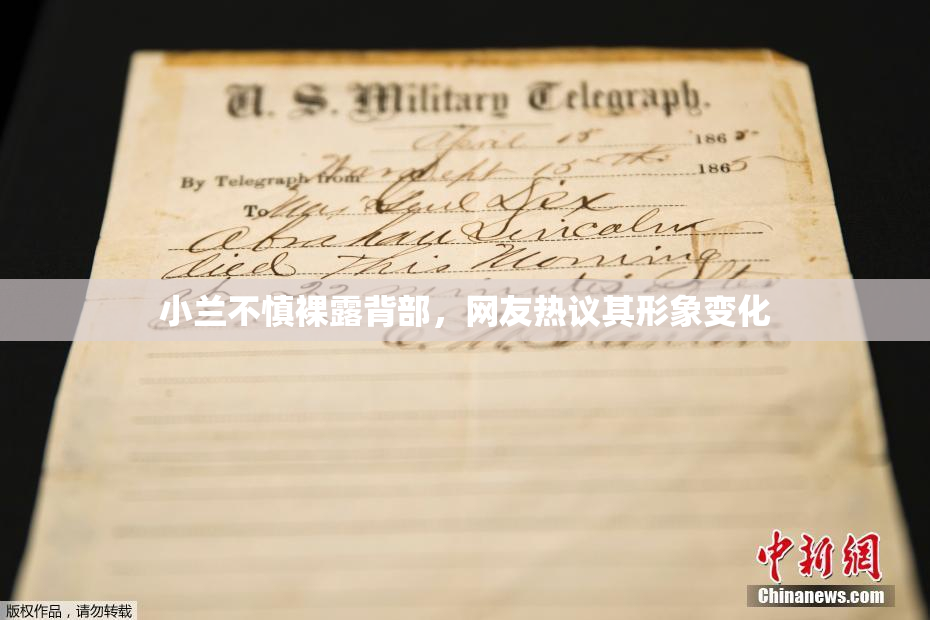 U. S. Military Telegraph.
April 15 1865
By Telegraph from War Dept 15th 1865
To Maj Genl Dix
Abraham Lincoln
died This Morning
at 22 minutes after
小兰不慎裸露背部，网友热议其形象变化
中新网
Chinanews.com
版权作品，请勿转载